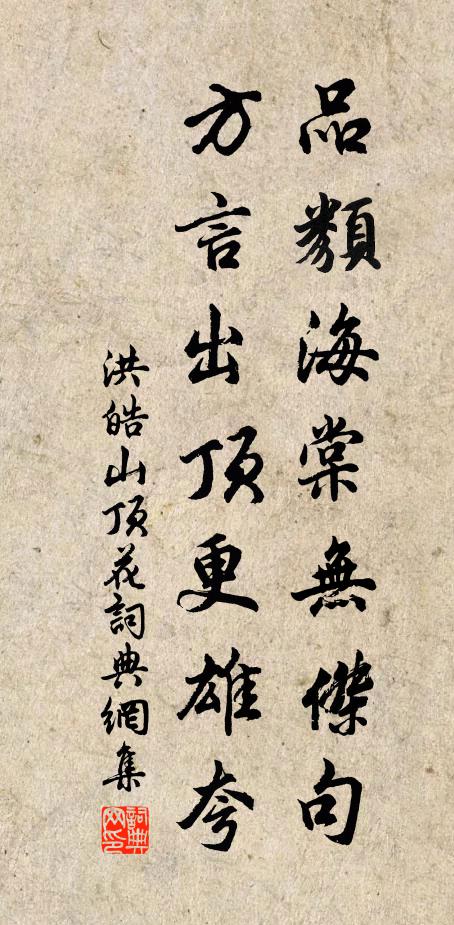 品類海棠無傑句
方言出頂更雄夸
洪皓山頂花詞典網集
詞典网印